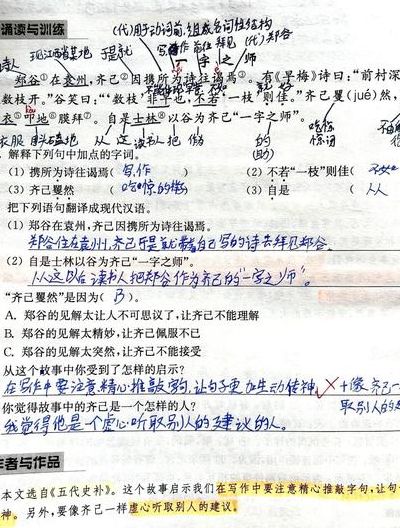 诵读与训练
(代)用于动词前,组成名词性结构
现江西省某地 于是就 写作 前往 拜见 (代)郑谷
一字之师
郑谷①在袁州,齐己②因携所为诗往谒焉③。有《早梅》诗曰:"前村深
数枝开。"谷笑曰:"'数枝'非早也,不若'一枝'则佳。"齐己矍(jué)然,
衣⑤叩地⑥膜拜⑦。自是士林⑧以谷为齐己"一字之师"。
衣服 从 这 读书人 把 做 的
解释下列句中加点的字词。
(1) 携所为诗往谒焉( 写作 ) (2) 不若"一枝"则佳( 不如
(3) 齐己矍然 ( 吃惊的样 ) (3) 自是 ( 从
把下列语句翻译成现代汉语。
(1) 郑谷在袁州,齐己因携所为诗往谒焉。
郑谷住在袁州,齐己于是就带着自己写的诗去拜见郑谷。
(2) 自是士林以谷为齐己"一字之师"。
从这以后读书人把郑谷作为齐己的"一字之师"。
"齐己矍然"是因为( B )。
A. 郑谷的见解太让人不可思议了,让齐己不能理解
B. 郑谷的见解太精妙,让齐己佩服不已
C. 郑谷的见解太突然,让齐己不能接受
从这个故事中你受到了怎样的启示?
在写作中要注意精心推敲字句,让句子更加生动传神。 +像齐己一
你觉得故事中的齐己是一个怎样的人? 取别人的
我觉得他是一个虚心听取别人的建议的人。
者与作品
本文选自《五代史补》。这个故事启示我们在写作中要注意精心推敲字句,让句
神。另外,要像齐己一样虚心听取别人的建议。